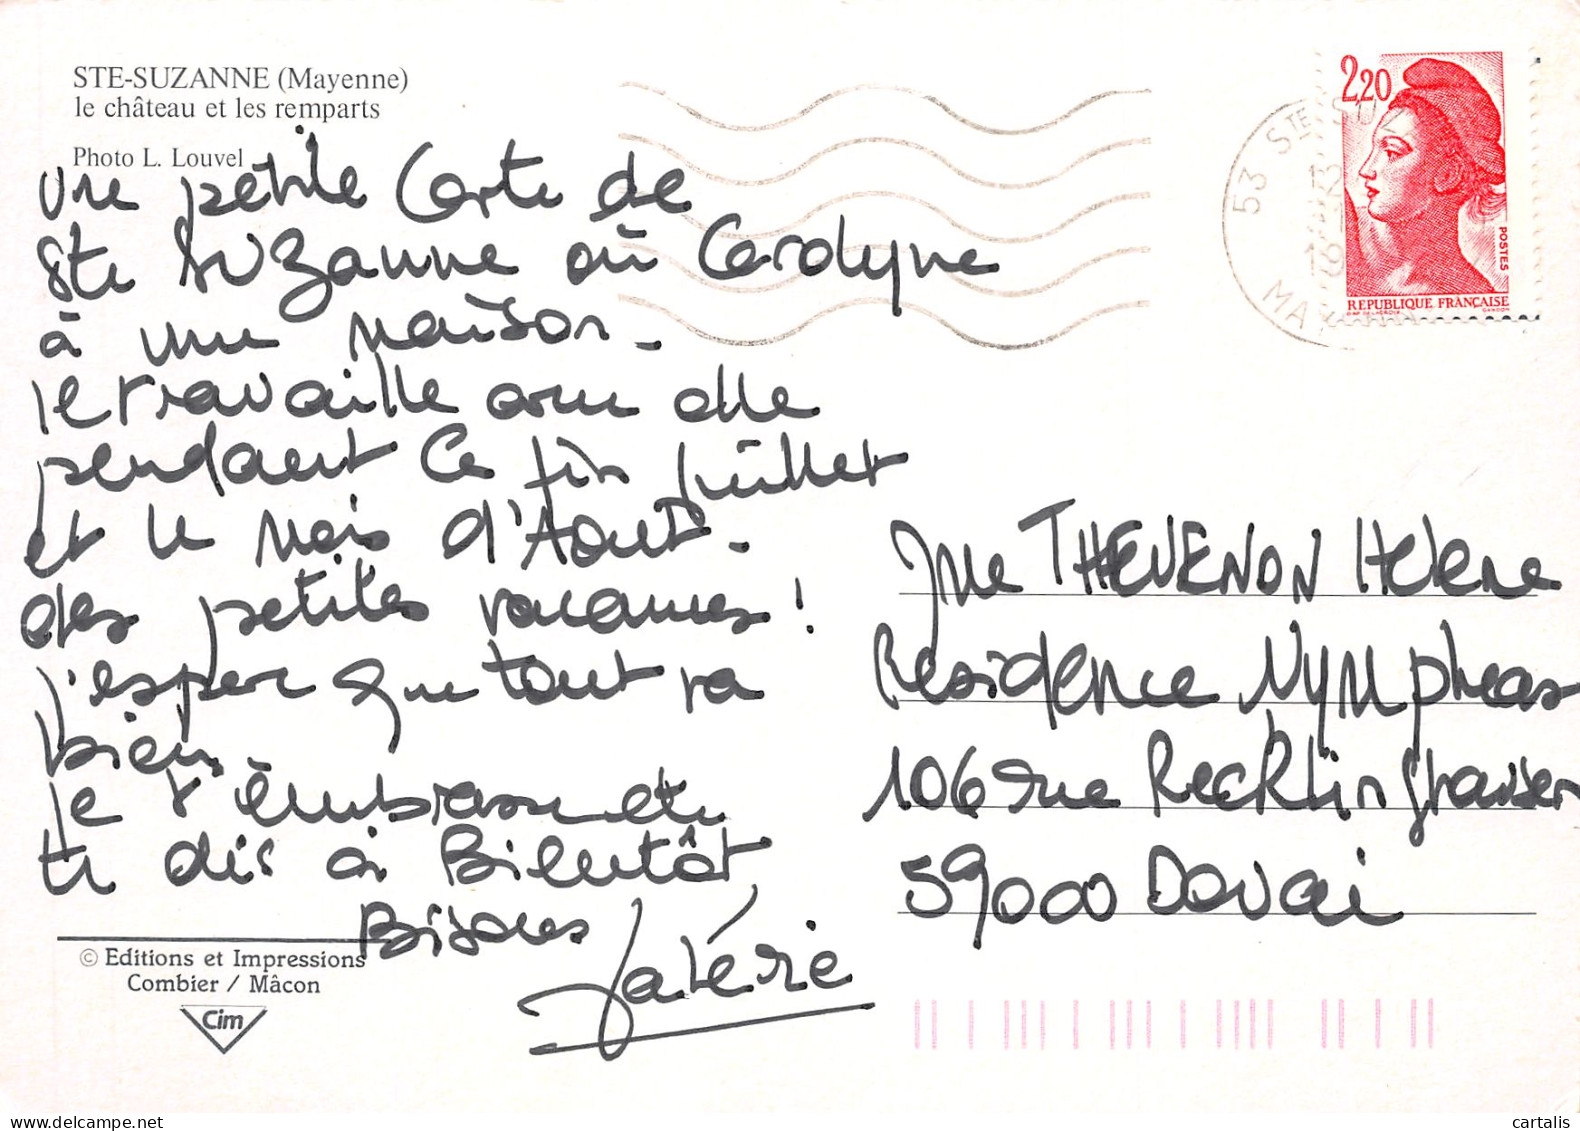 STE-SUZANNE (Mayenne)
le château et les remparts
Photo L. Louvel
une petite Carte de
Ste Suzanne où Carolyne
à une maison.
Je travaille avec elle
pendant ce fin juillet
et le mois d'Aout.
des petites vacances !
j'espere que tout va
bien.
je t'embrasse et
te dis à Bientôt,
Bisous
Valérie
© Editions et Impressions
Combier / Mâcon
Cim
53 STE SUZ
MAY
2,20
POSTES
REPUBLIQUE FRANÇAISE
GANDON
THEVENON Helene
Residence Nympheas
106 rue Recklinghausen
59000 Douai
cartalis